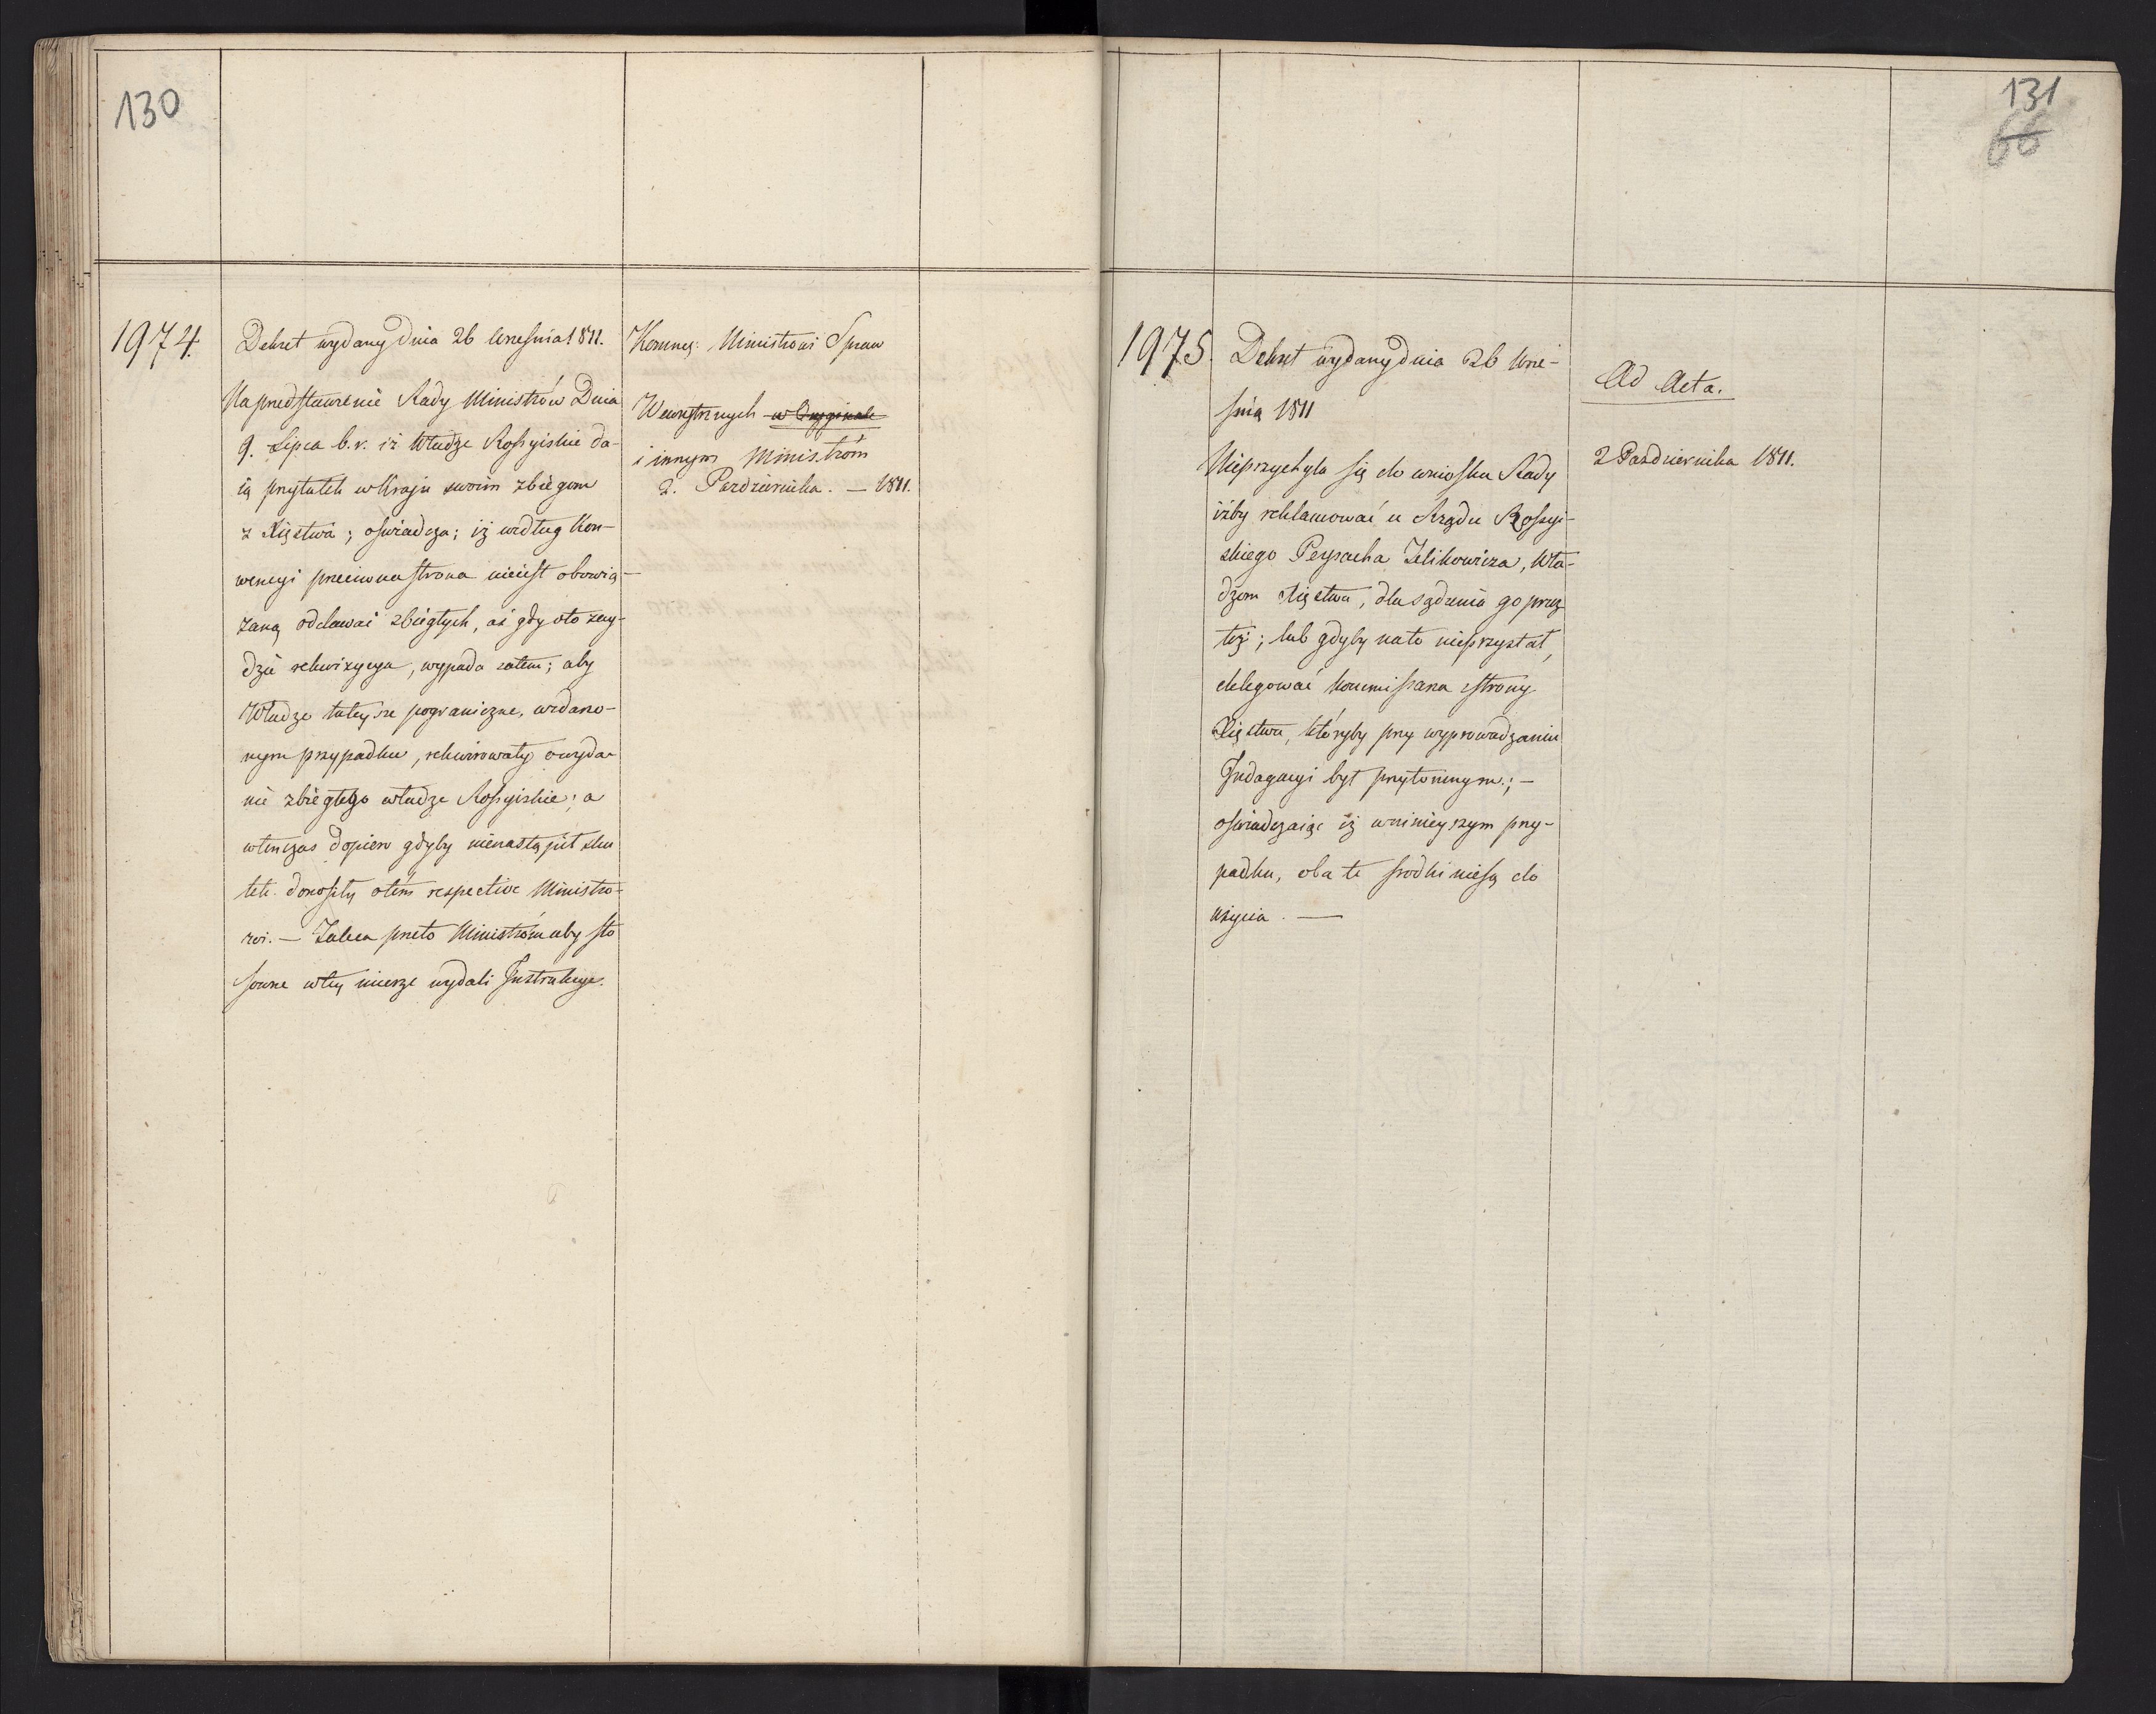 130
1974.
Dekret wydany dnia 26 Wrześnial 1811.
Na przedstawienie Rady Ministrów Dnia
9. Lipca b.r. iż Władze Rossyiskie da-
ią przytułek w kraju swoim zbiegom
z Xięstwa; oświadcza; iż według Kon-
wencyi przeciwna strona nieiest obowią-
zaną oddawać zbiegłych, aż gdy oto zay-
dzie rekwizycya, wypada zatem; aby
Władze tuteysze pograniczne, w zdarzo-
nym przypadku, rekwirowały o wyda-
nie zbiegłego władze Rossyiskie; a
wtenczas dopiero gdyby nienastąpił sku
tek donosiły otém respective Ministro-
wi. — Zaleca przeto Ministróm aby sto
sowne w tey mierze wydali Instrukcye.
Kommu: Ministrowi Spraw
Wewnętrznych w Oryginale
i innym Ministróm
2. Pazdziernika. — 1811.
131
66
1975.
Dekret wydany dnia 26 Wrze-
śnia 1811
Nieprzychyla się do wniosku Rady
iżby reklamować u Rządu Rossyi-
skiego Peysacha Zelikowicza, Wła-
dzom Xięstwa, dla sądzenia go przez
też; lub gdyby nato nieprzystał,
delegować kommissarza z strony
Xięstwa, któryby przy wyprowadzaniu
Indagacyi był przytomnym.; —
oświadczaiąc iż w niniéyszym przy-
padku, oba te srodki niesą do
użycia. —
Ad Acta.
2 Pazdziernika 1811.